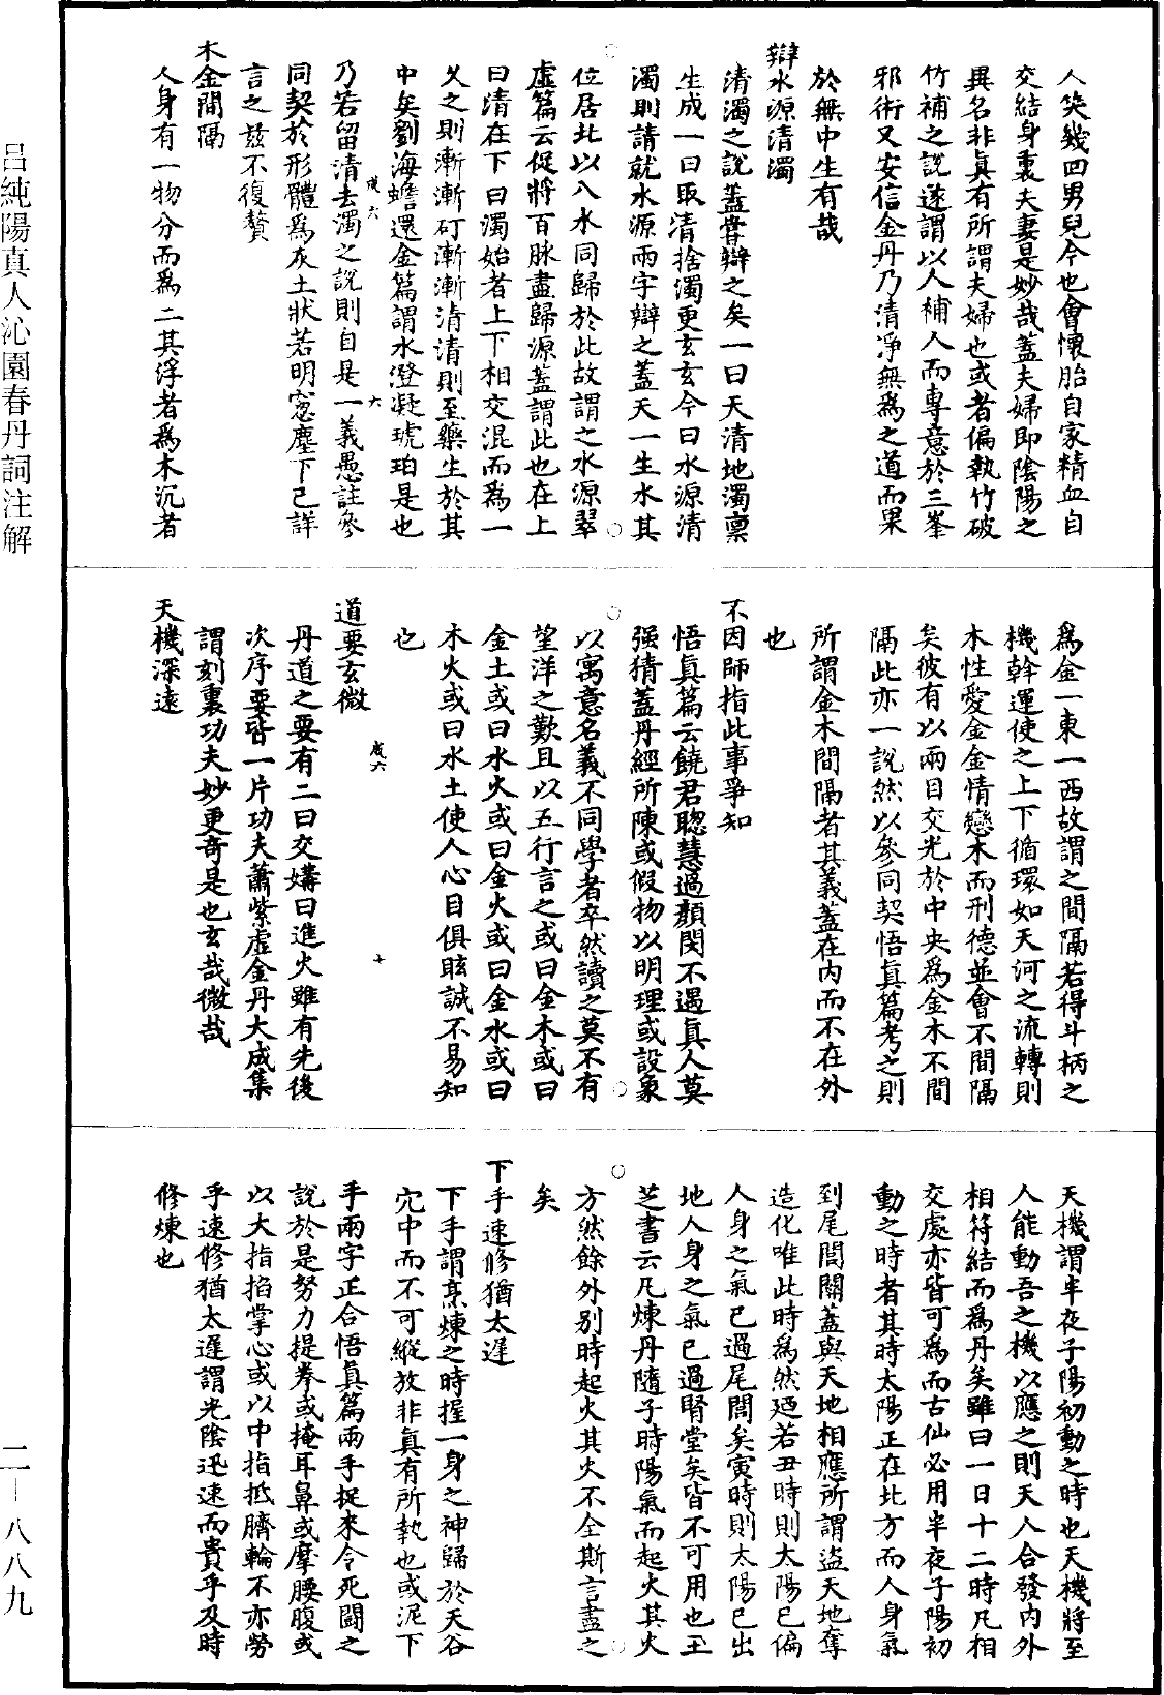 人笑幾回男兒今也會懷胎自家精血自
交結身裏夫妻是妙哉蓋夫婦即陰陽之
異名非眞有所謂夫婦也或者偏執竹破
竹補之說遂謂以人補人而專意於三峯
邪術又安信金丹乃清淨無爲之道而果
於無中生有哉
辯水源清濁
清濁之說蓋嘗辯之矣一曰天清地濁禀
生成一曰取清捨濁更玄玄今曰水源清
濁則請就水源兩字辯之蓋天一生水其
位居北以入水同歸於此故謂之水源翠
虛篇云促將百脉盡歸源蓋謂此也在上
曰清在下曰濁始者上下相交混而爲一
久之則漸漸矴漸漸清清則至藥生於其
中矣劉海蟾還金篇謂水澄凝琥珀是也
成六 六
乃若留清去濁之說則自是一義愚註參
同契於形體爲灰土狀若明窓塵下已詳
言之兹不復贅
木金間隔
人身有一物分而爲二其浮者爲木沉者
爲金一東一西故謂之間隔若得斗柄之
機幹運使之上下循環如天河之流轉則
木性愛金金情戀木而刑德並會不間隔
矣彼有以兩目交光於中央爲金木不間
隔此亦一說然以參同契悟眞篇考之則
所謂金木間隔者其義蓋在內而不在外
也
不因師指此事爭知
悟眞篇云饒君聰慧過顏閔不遇眞人莫
强猜蓋丹經所陳或假物以明理或設象
以寓意名義不同學者卒然讀之莫不有
望洋之歎且以五行言之或曰金木或曰
金土或曰水火或曰金火或曰金水或曰
木火或曰水土使人心目俱眩誠不易知
也
成六 七
道要玄微
丹道之要有二曰交媾曰進火雖有先後
次序要皆一片功夫蕭紫虛金丹大成集
謂刻裏功夫妙更奇是也玄哉微哉
天機深遠
天機謂半夜子陽初動之時也天機將至
人能動吾之機以應之則天人合發內外
相符結而爲丹矣雖曰一日十二時凡相
交處亦皆可爲而古仙必用半夜子陽初
動之時者其時太陽正在北方而人身氣
到尾閭關蓋與天地相應所謂盜天地奪
造化唯此時爲然廼若丑時則太陽已偏
人身之氣已過尾閭矣寅時則太陽已出
地人身之氣已過腎堂矣皆不可用也玉
芝書云凡煉丹隨子時陽氣而起火其火
方然餘外別時起火其火不全斯言盡之
矣
下手速修猶太遲
下手謂烹煉之時握一身之神歸於天谷
穴中而不可縱放非眞有所執也或泥下
手兩字正合悟眞篇兩手捉來令死鬪之
說於是努力提拳或掩耳鼻或摩腰腹或
以大指掐掌心或以中指抵臍輪不亦勞
乎速修猶太遲謂光陰迅速而貴乎及時
修煉也
呂純陽真人沁園春丹詞注解
二—八八九